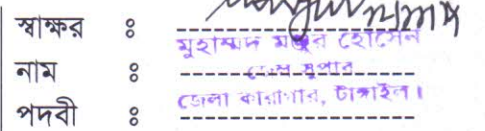 স্বাক্ষর ঃ
মুহাম্মদ মঞ্জুর হোসেন
নাম ঃ জেল সুপার
পদবী ঃ জেলা কারাগার, টাঙ্গাইল।